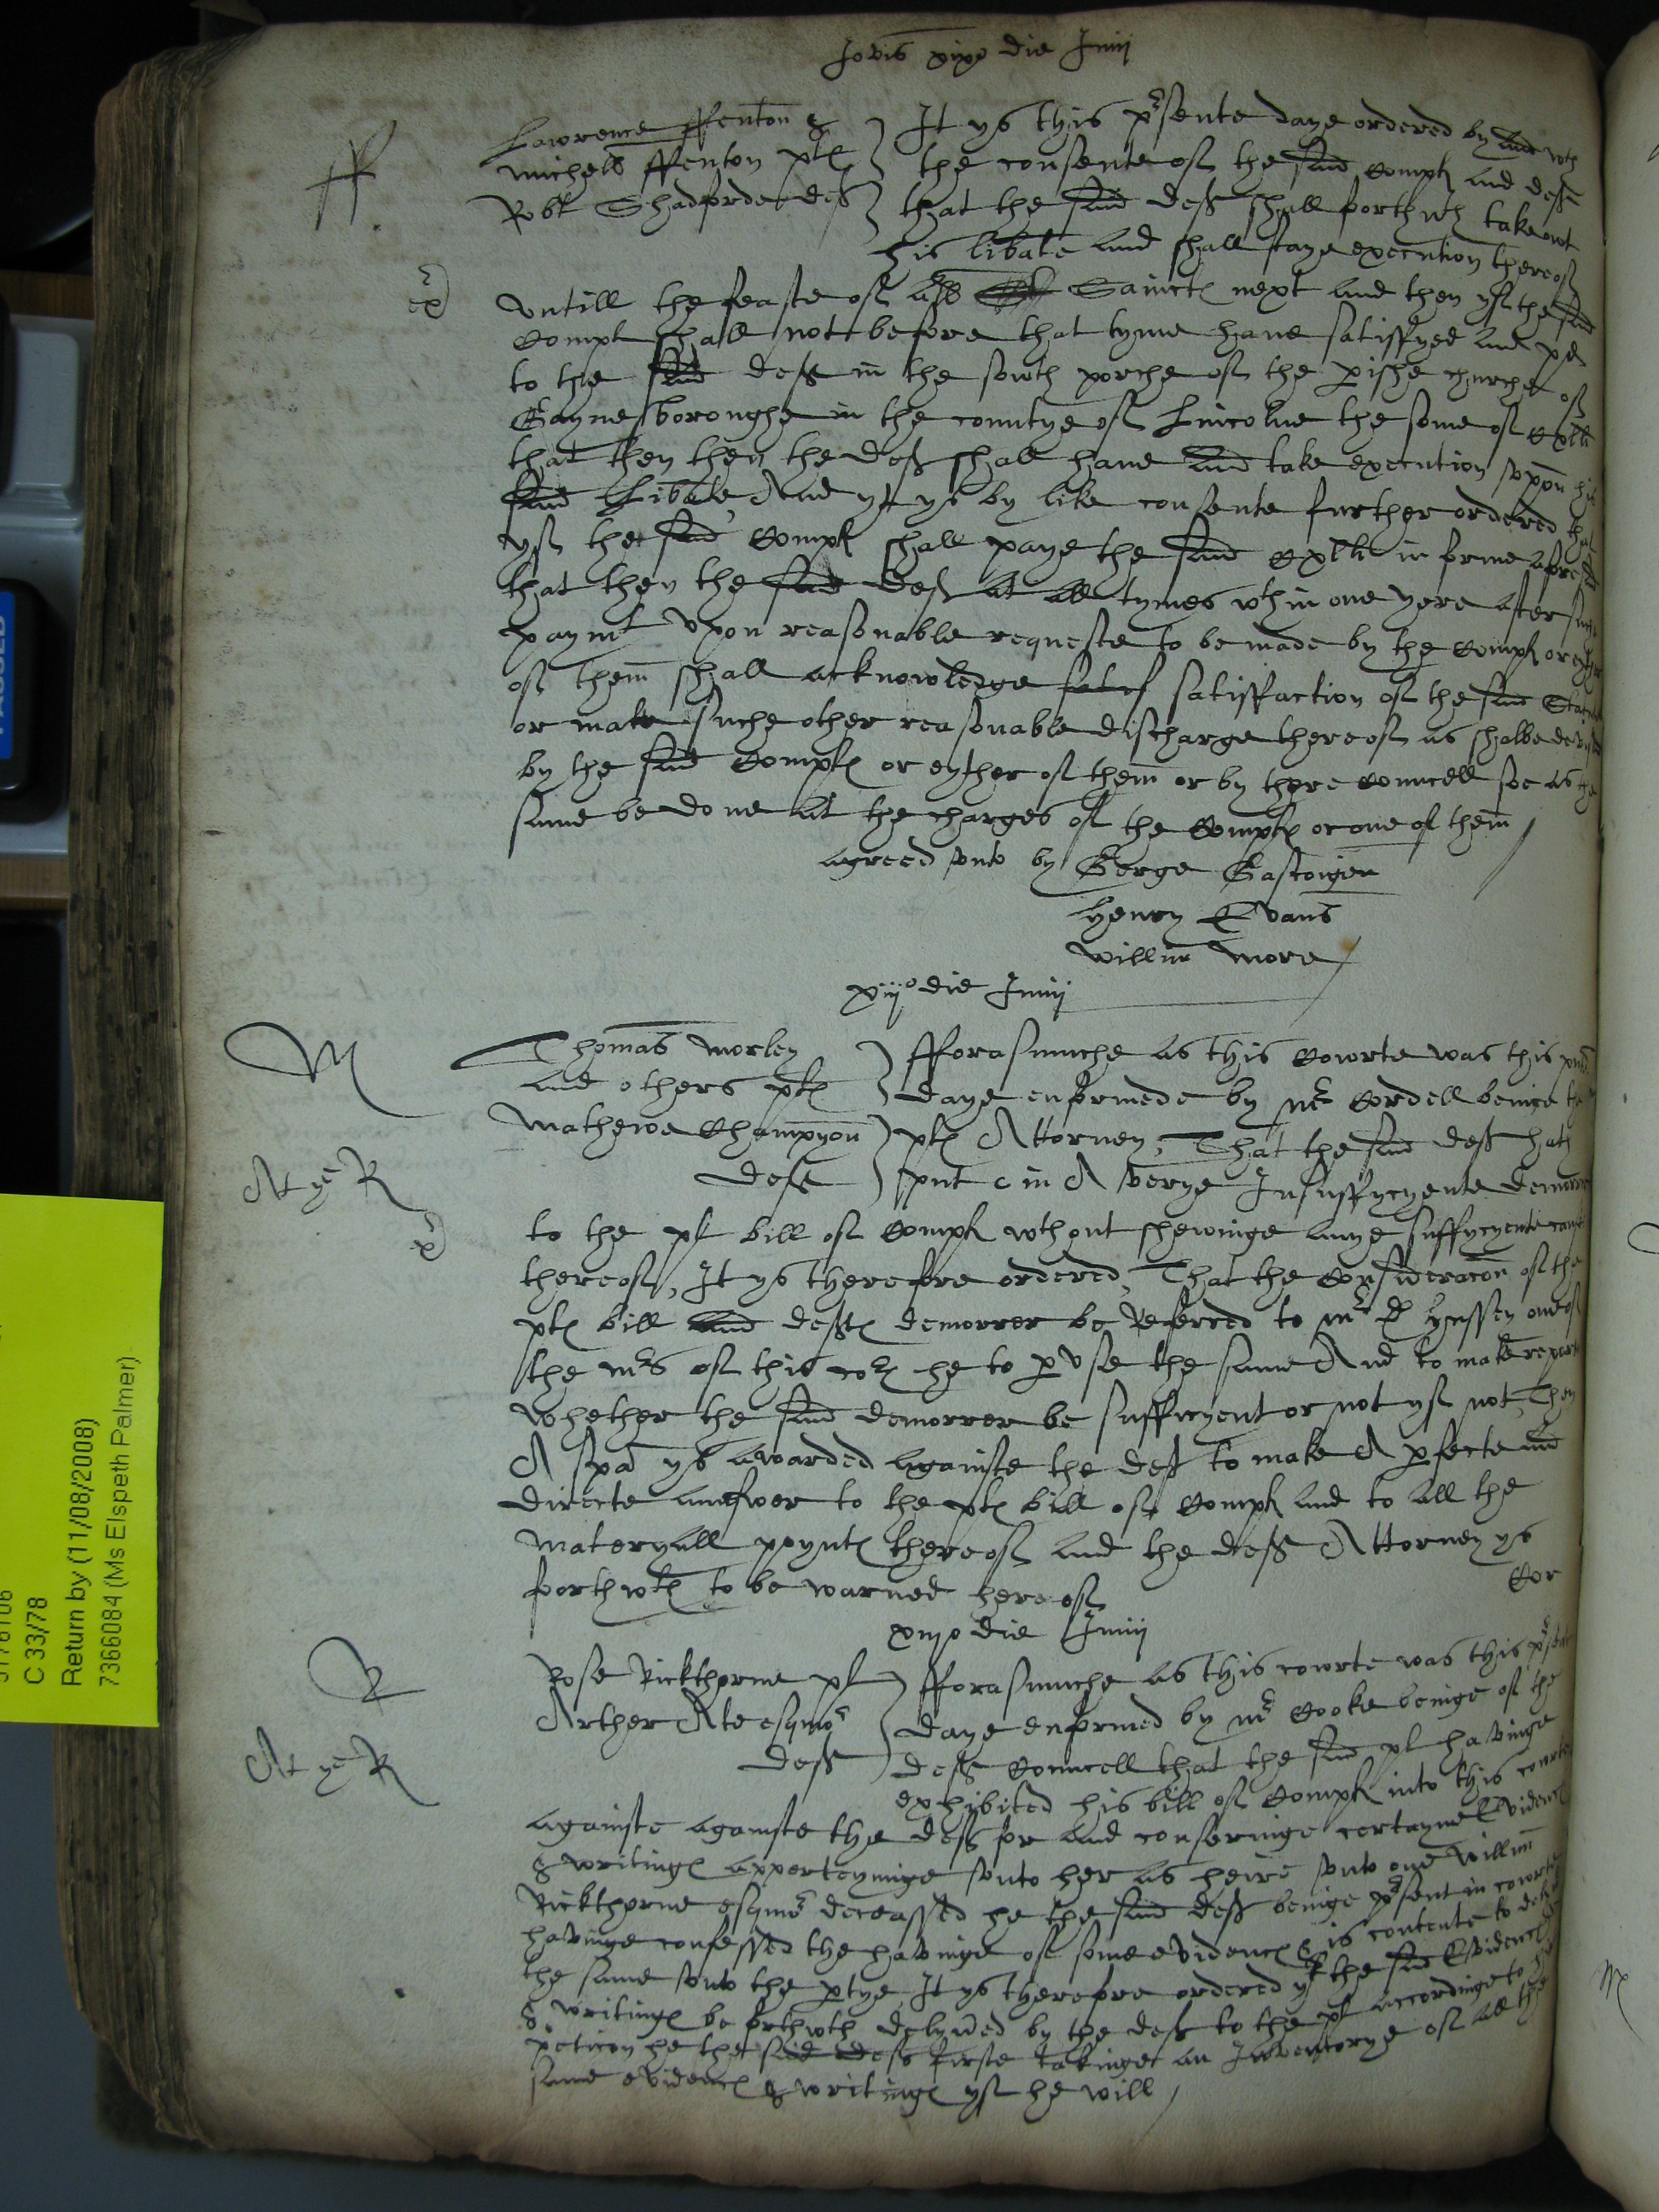 Jovis xixo die Junij
ff
Lawrence ffenton &
michell ffenton plt
Robt Shadforde deft
It ys this prsente daye ordered by and wth
the consente of the said compt and deft
that the said deft shall forthwth take owt
his libate and shall staye execution thereof
ex
Untill the feaste of all Sainctes next and then yf the said
compt shall not before that tyme have satisffyed and pd
to the said deft in the sowth porche of the pishe churche of
Gaynesboroughe in the countye of Lincolne the some of cxlli
that then then the deft shall have and take execution uppon his
said Libate, And yt ys by like consente further ordered that
yf the said compt shall paye the said cxlli in forme afore
that then the said deft at all tymes wthin one yere after suche
paymt Upon reasonable requeste to be made by the compt or eyther
of them shall acknowledge satisf satisffaction of the said Statute
or make suche other reasonable discharge thereof as shalbe devised
by the said compt or eyther of them or by there councell soe as the
same be done at the charges of the compt or one of them /
agreed unto by George Gascoigen
Henry Evans
willm more /
xiijo die Junij
M
At ye R
ex
Thomas morley
and others plt
Mathewe Champyon
deft
fforasmuche as this cowrte was this pnte
daye enformede by mr Cordell beinge the
plt Attorney, That the said deft hath
put in A verye Insuffycyente demorrer
to the plt bill of compt wthout shewinge anye suffycyente cause
thereof, It ys therefore ordered, That the consideracon of the
plt bill and defts demorrer be Referred to mr D Hussey one of
the mrs of this cort he to pvse the same And to make reporte
Whether the said demorrer be suffycyent or not yf not, Then
A spa ys awarded againste the deft to make A pfecte and
directe answer to the plt bill of compt and to all the
materyall poynts thereof and the deft Attorney ys
forthwth to be warned hereof
Cor
xiijo die Junij
R
At ye R
Rose Rickthorne plt
Arther Ate esqwor
deft
fforasmuche as this cowrte was this prsente
daye enformed by mr Cooke beinge of the
deft councell that the said plt havinge
exhibited his bill of compt into this cowrte
againste againste the deft for and conserninge certayne Evidences
& writings apperteyninge unto her as heire unto one willm
Rickthorne esqwor deceassed he the said deft beinge prsent in cowrte
havinge confessed the havinge of some evidences & is contente to delyver
the same unto the ptye It ys therefore ordered yt the said Evidences
& writings be forthwth delyvred by the deft to the plt accordinge to his
peticon he the said deft firste takinge an Inventorye of all the
same evidences & writings yf he will /
C 33/78
Return by (11/08/2008)
7366084 (Ms Elspeth Palmer)